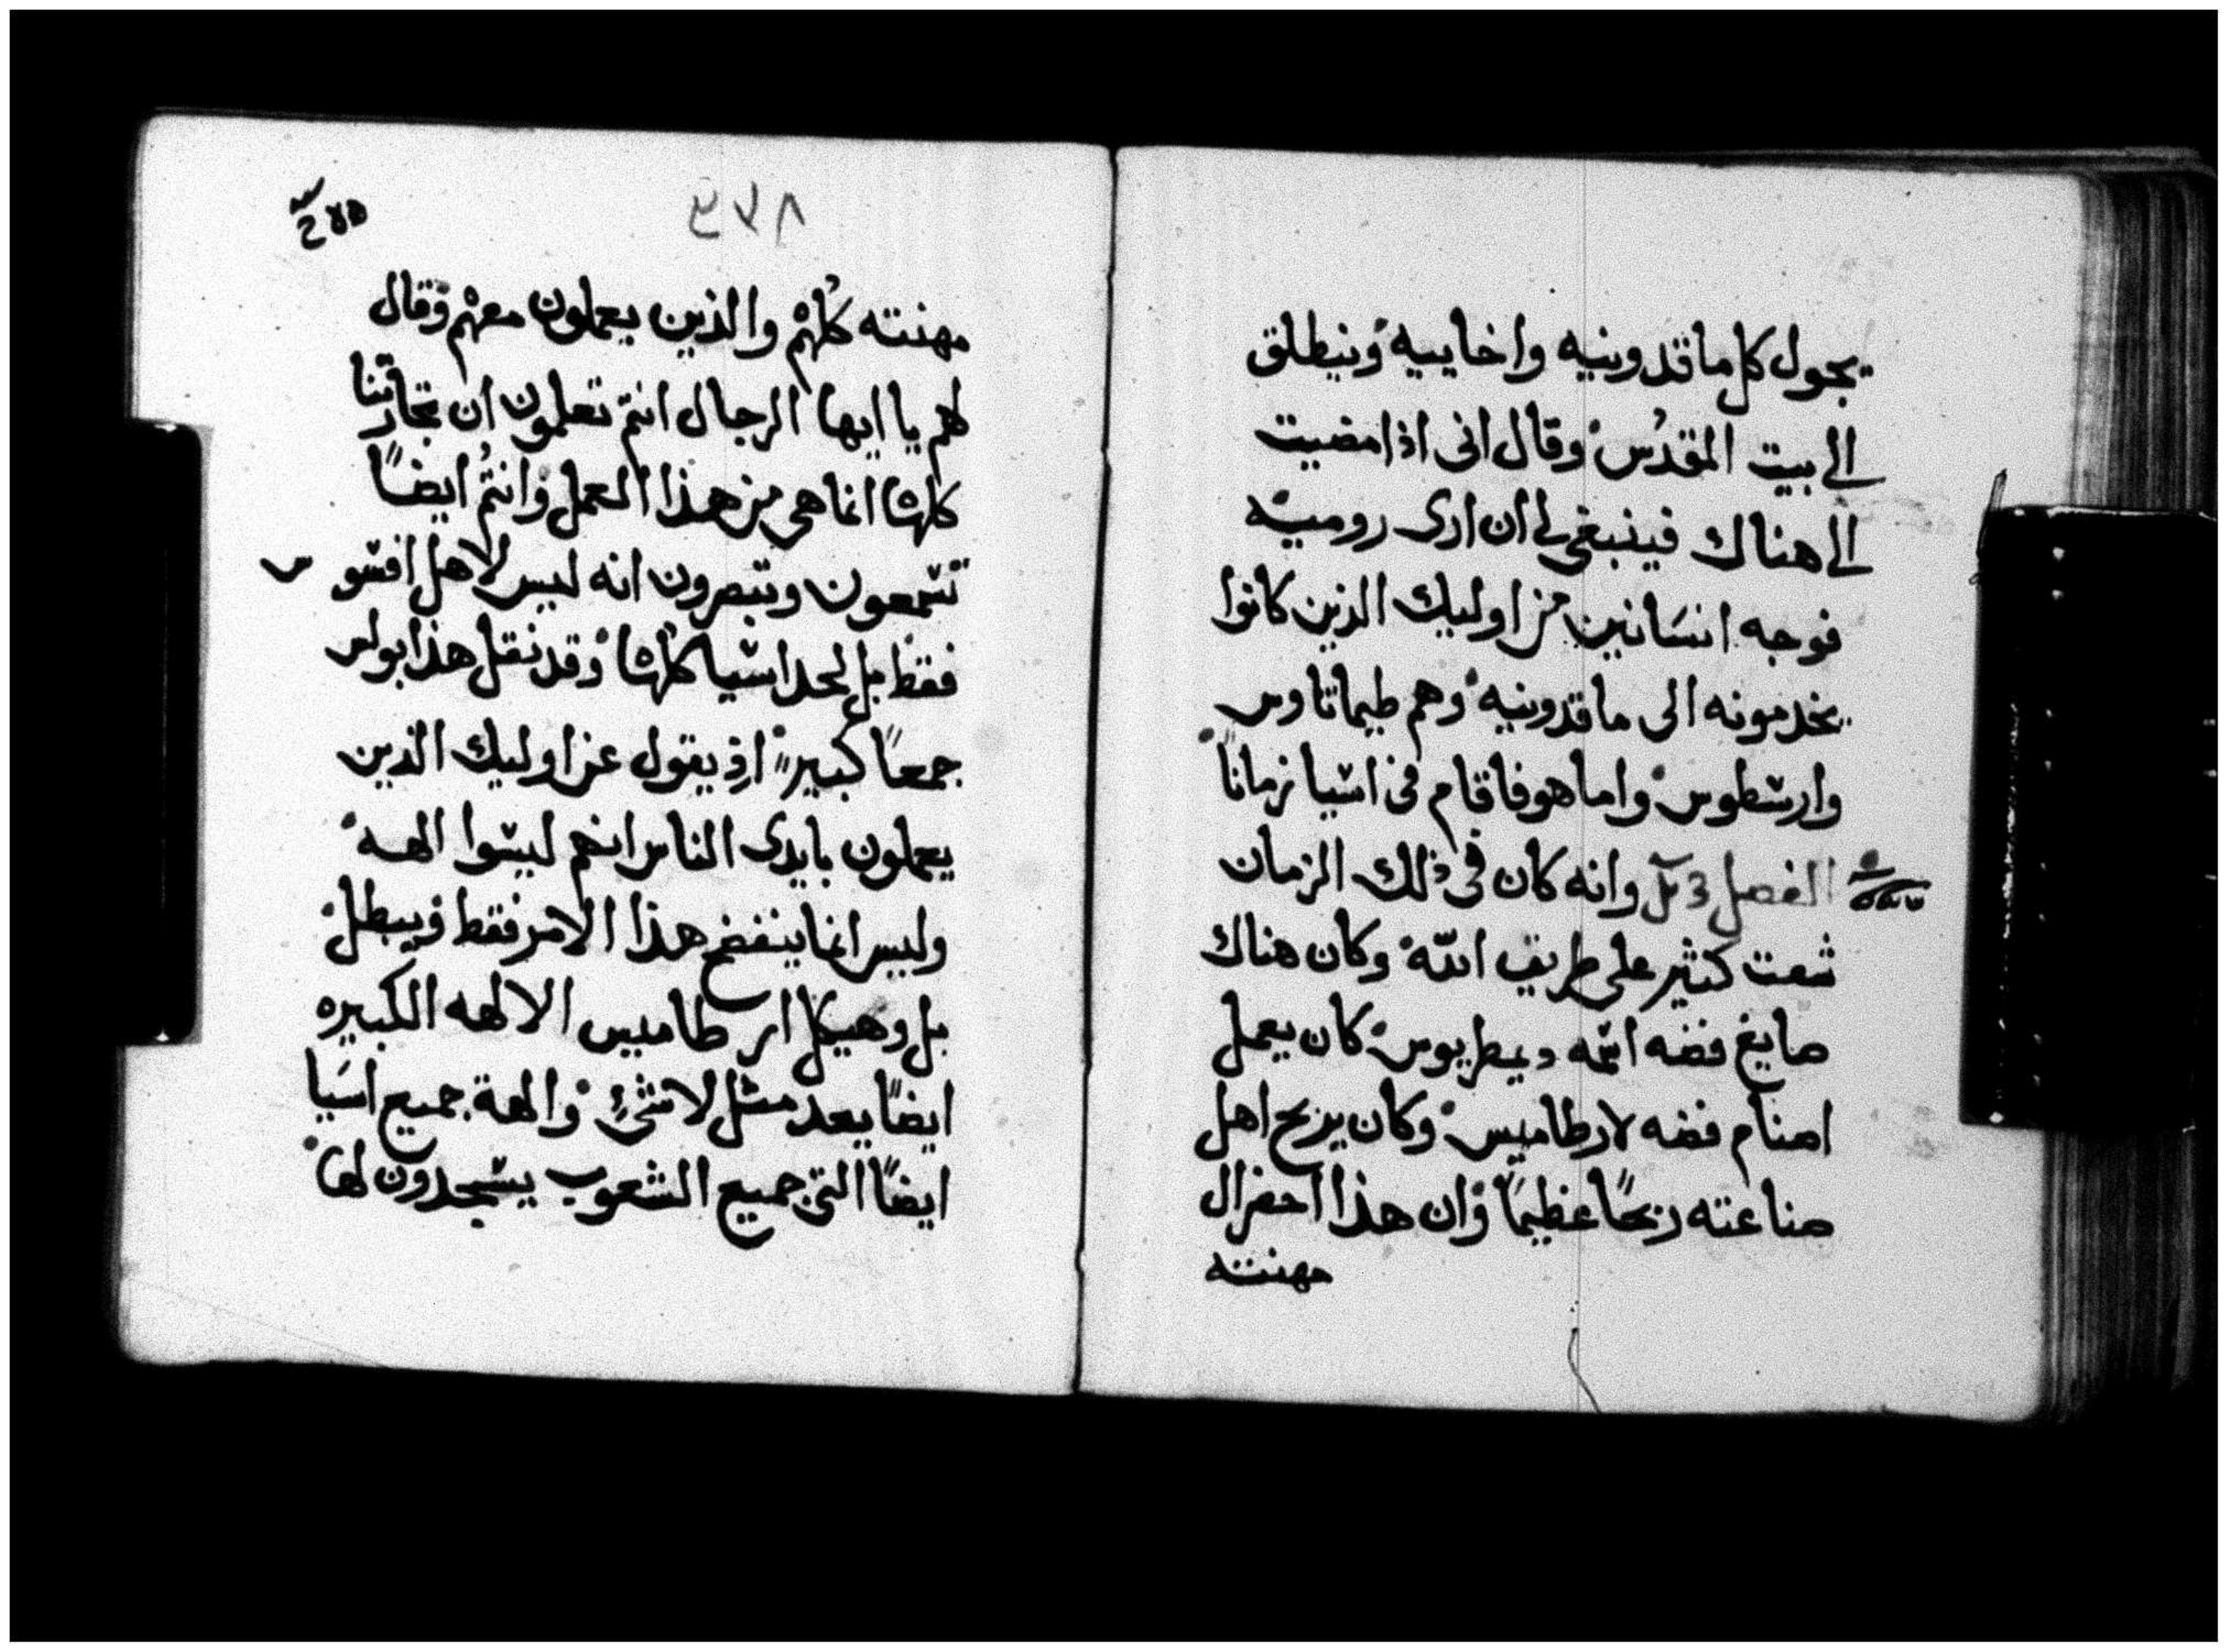 يجول كل ماقدونيه واخاييه وينطلق
الى بيت المقدُس وقال انى اذا مضيت
الى هناك فينبغى لى ان ارى روميه
فوجه انسَانين من اوليك الذين كانوا
يخدمونه الى ماقدونيه وهم طيماتاوس
وارسطوس واما هو فاقام فى اسيا زمانًا
الفصل وانه كان فى ذلك الزمان
شعت كثير على طريق الله وكان هناك
صايغ فضه اسمه ديمطريوس كان يعمل
اصنام فضه لارطاميس وكان يربح اهل
صناعته ربحًا عظيمًا وان هذا احضر ال
مهنته
٣٧٨
مهنته كلهُم والذين يعملون معهم وقال
لهم يا ايها الرجال انتم تعلمون ان تجارتنا
كلها انما هى من هذا العمل وانتُم ايضًا
تسمعون وتبصرون انه ليس لاهل افسوس
فقط بل لحد اسيا كلها وقد نقل هذا بولس
جمعًا كبيرً اذ يقول عن اوليك الذين
يعملون بايدى الناس انهم ليسوا الهه
وليس انما ينفضح هذا الامر فقط ويبطل
بل وهيكل ارطاميس الالهه الكبيره
ايضًا يعد مثل لا شئ والهة جميع اسَيا
ايضًا التى جميع الشعوب يسجدون لها